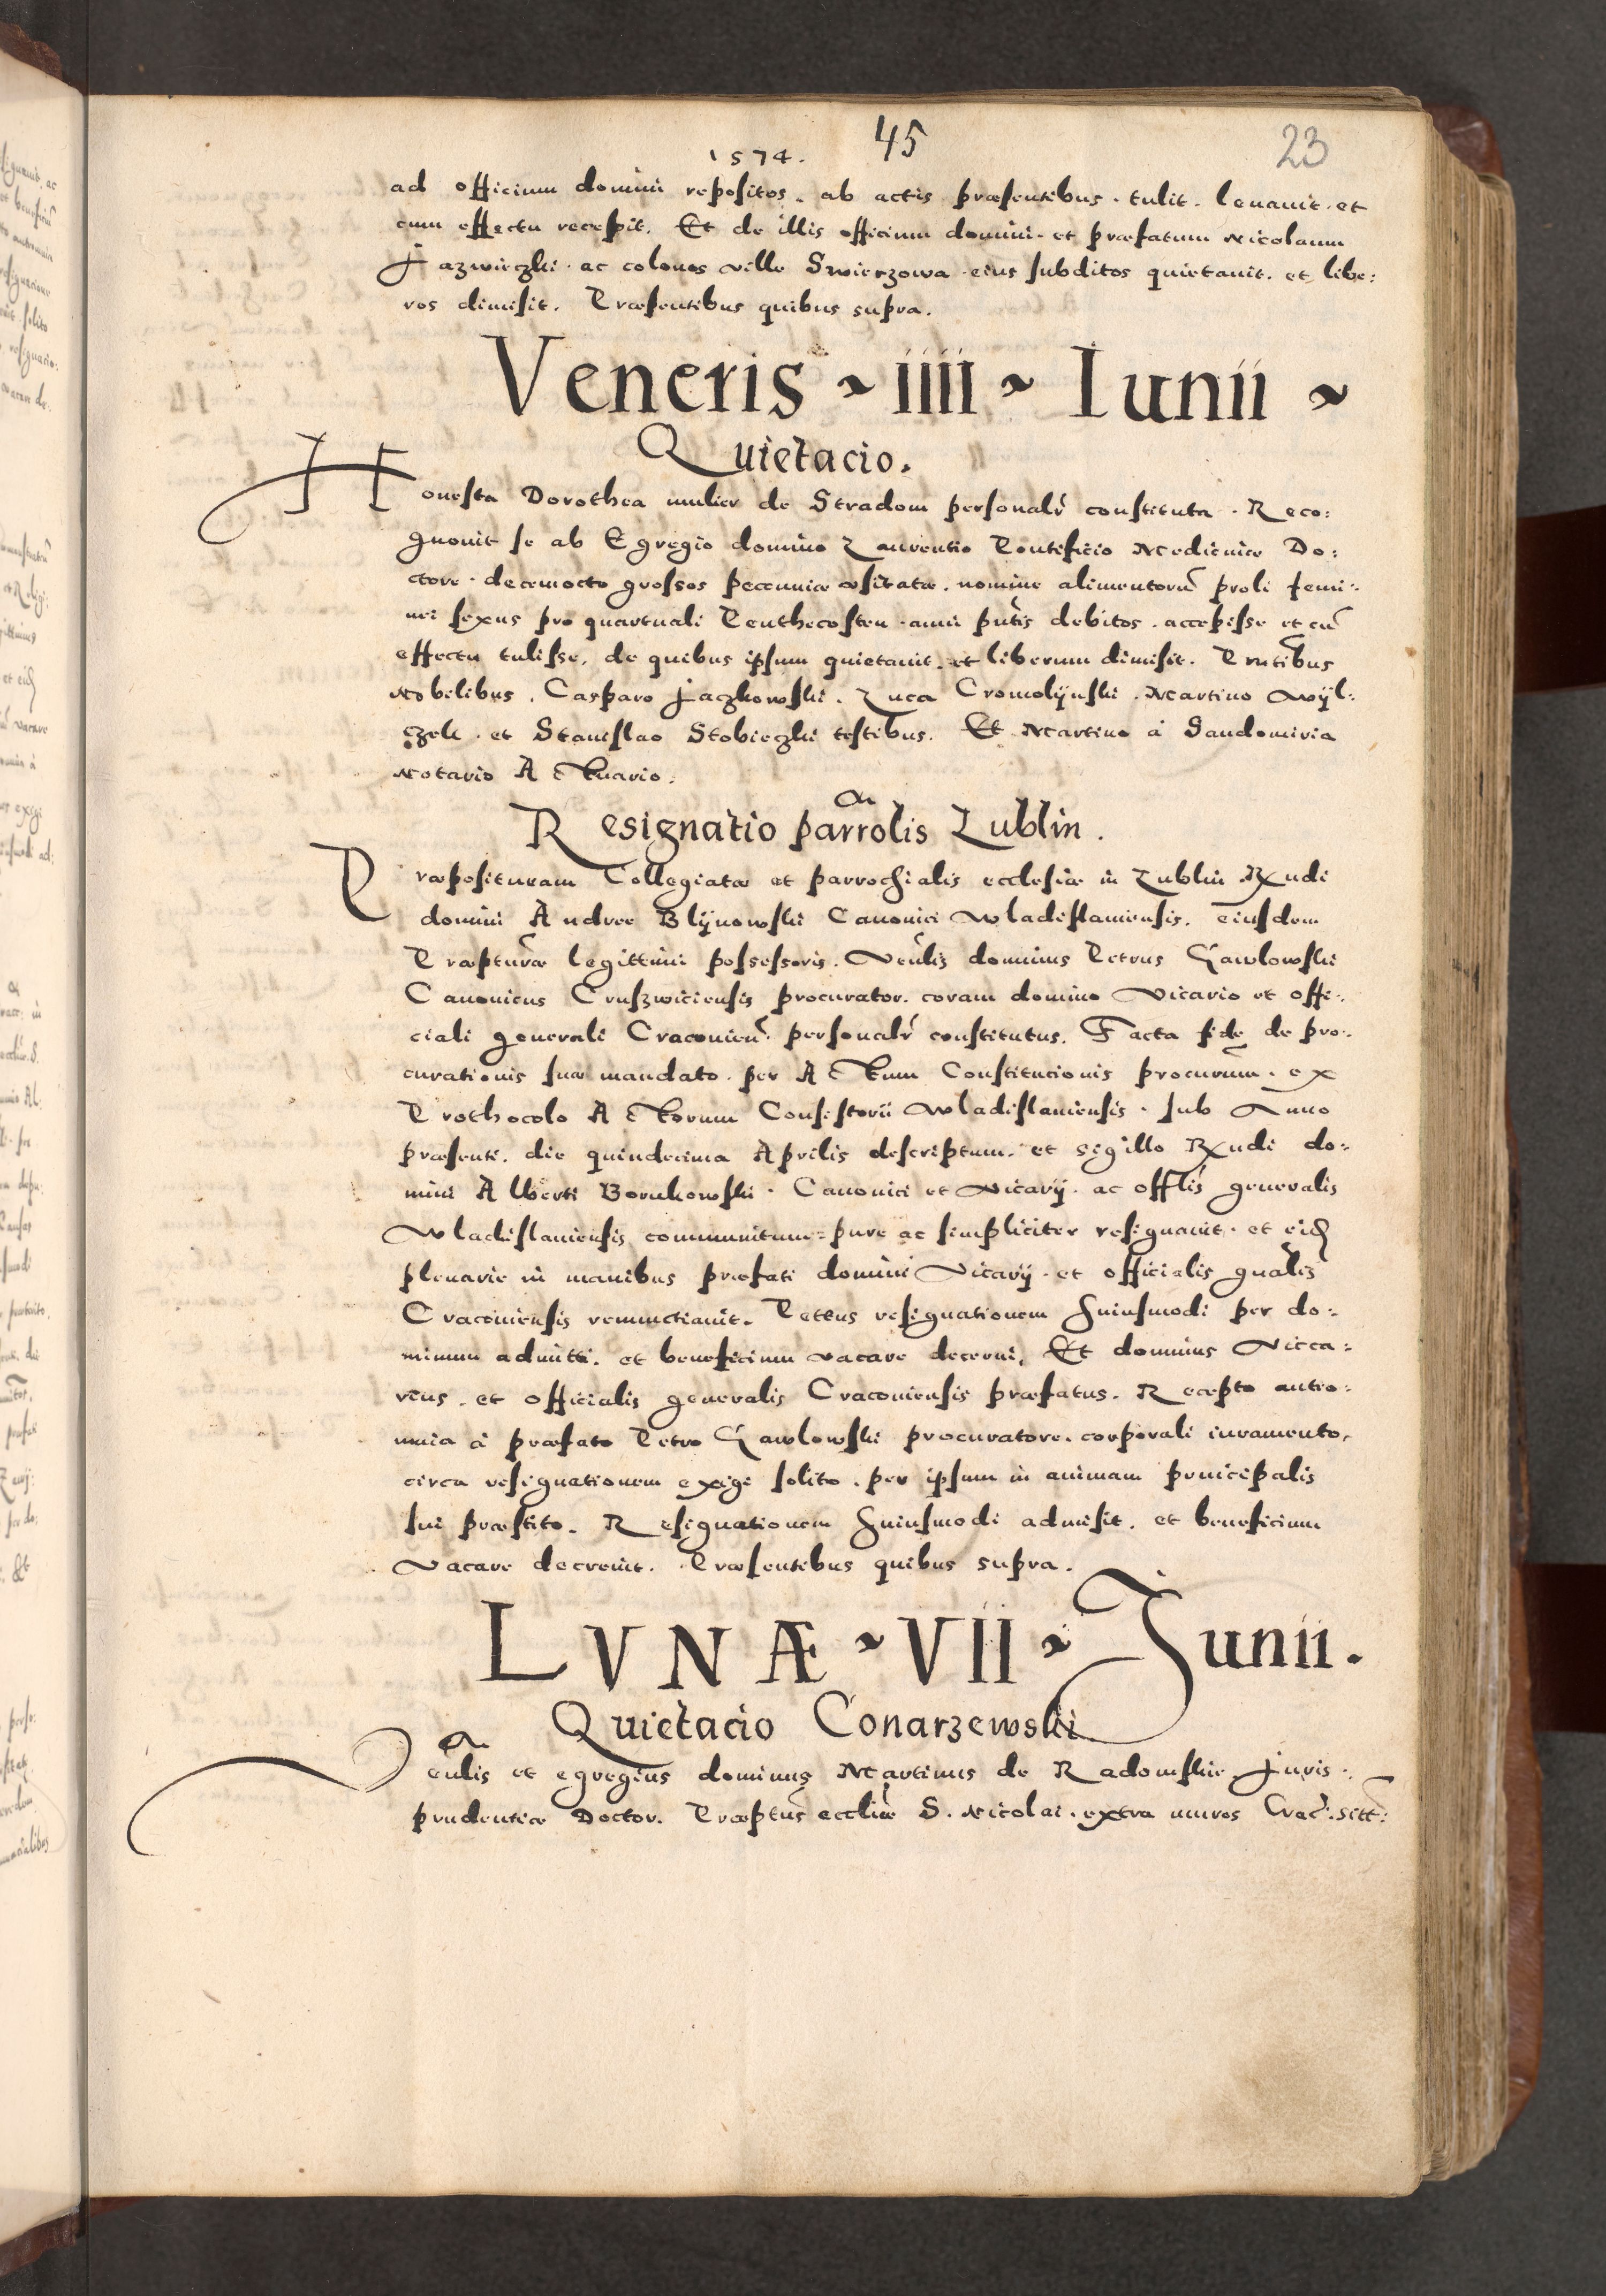 45
23
1574.
ad officium domini repositos. ab actis præsentibus. tulit. levavit. et
cum effectu recepit. Et de illis officium domini. et præfatum Nicolaum
Jazwieczki. ac colonos ville Swierzowa. eius subditos quietavit. et libe:
ros dimisit. Præsentibus quibus supra.
Veneris ~ iiii ~ Iunii ~
Quietacio.
Honesta Dorothea mulier de Stradom personalr constituta. Reco:
gnovit se ab Egregio domino Laurentio Pontificio Medicinæ Do:
ctore. decemocto grossos pecuniæ usitatæ. nomine alimentorũ proli femi:
nei sexus pro quartuali Penthecosten. anni pñtis debitos. accepisse et cũ
effectu tulisse, de quibus ipsum quietavit. et liberum dimisit. Pñtibus
Nobilibus. Casparo Jaczkowski. Luca Cromolÿnski. Martino Wÿl:
czek. et Stanislao Stobieczki testibus. Et Martino à Sandomiria
Notario Actuario.
Resignatio parrolis Lublin.
Præposituram Collegiatæ et parrochialis ecclesiæ in Lublin Rxndi
domini Andree Blÿnowski Canonici Wladislaviensis. eiusdem
Præpturæ legittimi possessoris. Venlis dominus Petrus Gawlowski
Canonicus Cruszwiciensis procurator. coram domino Vicario et offi:
ciali generali Cracovieñ. personalr constitutus. Facta fide de pro:
curationis suæ mandato. per Actum Constitucionis procurum. ex
Prothocolo Actorum Consistorii Wladislaviensis. sub Anno
præsenti. die quindecima Aprilis descriptum. et sigillo Rxndi do:
mini Alberti Bornkowski. Canonici et Vicarÿ. ac offlis generalis
Wladislaviensis communitum: pure ac simpliciter resignavit. et eid
plenarie in manibus præfati domini Vicarÿ. et officialis gnalis
Cracoviensis renunctiavit. Petens resignationem huiusmodi per do:
minum admitti. et beneficium vacare decerni, Et dominus Vicca:
rius. et officialis generalis Cracoviensis præfatus. Recepto antio:
mnia à præfato Petro Gawlowski procuratore. corporali iuramento,
circa resignationem exigi solito. per ipsum in animam principalis
sui præstito. Resignationem huiusmodi admisit. et beneficium
vacare decrevit. Præsentibus quibus supra.
LVNÆ ~ VII ~ Junii.
Quietacio Conarzewski
Venlis et egregius dominus Martinus de Radomskie Juris:
prudentiæ Doctor. Præptus eccliæ S. Nicolai. extra muros Crac. sitt: